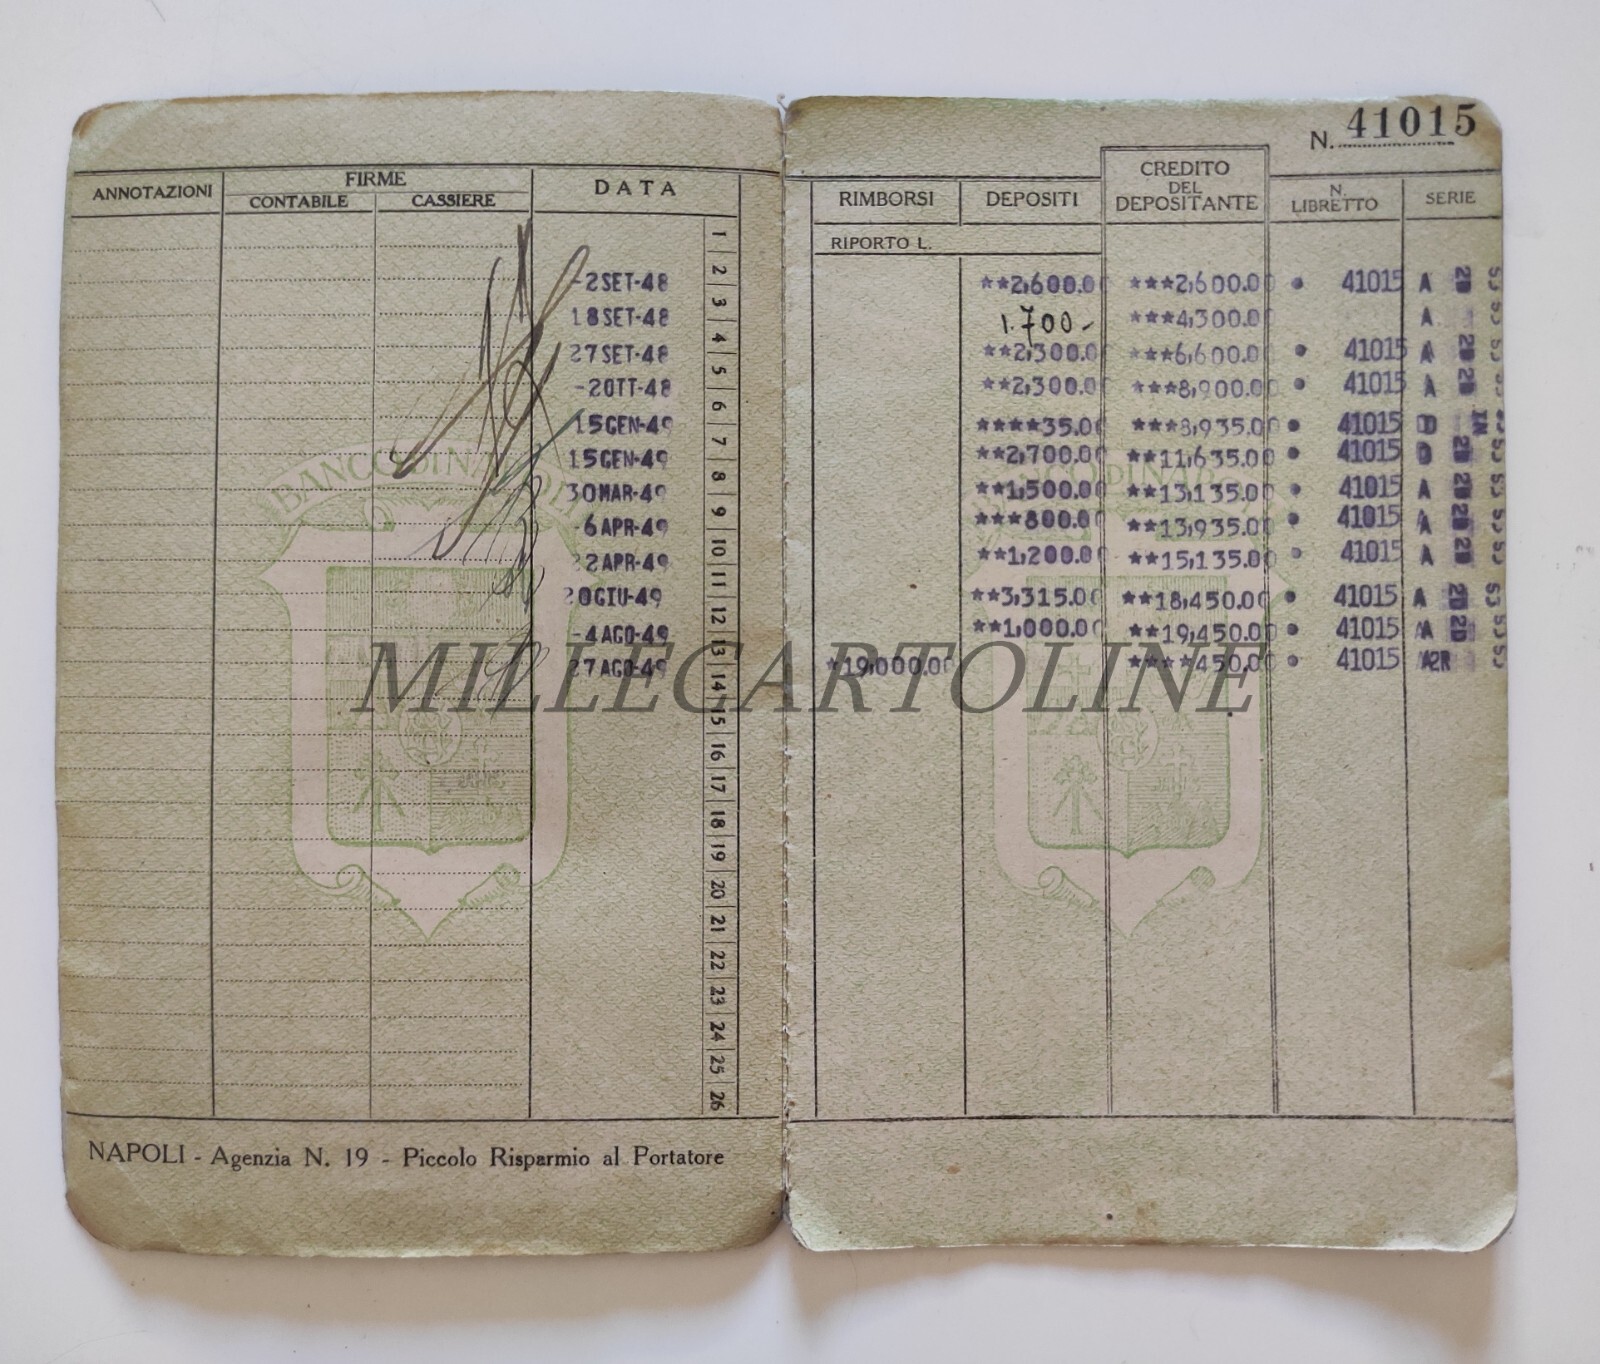 N. 41015
ANNOTAZIONI FIRME DATA
CONTABILE CASSIERE
RIMBORSI DEPOSITI CREDITO DEL DEPOSITANTE N. LIBRETTO SERIE
RIPORTO L.
1
2
3
4
5
6
7
8
9
10
11
12
13
14
15
16
17
18
19
20
21
22
23
24
25
26
-2SET-48 **2,600.00 ***2,600.00 • 41015 A
18SET-48 1.700- ***4,300.00 A
27SET-48 **2,300.00 ***6,600.00 • 41015 A
-2OTT-48 **2,300.00 ***8,900.00 • 41015 A
15GEN-49 ****35.00 ***8,935.00 • 41015 D IN
15GEN-49 **2,700.00 **11,635.00 • 41015 D
30MAR-49 **1,500.00 **13,135.00 • 41015 A
-6APR-49 ***800.00 **13,935.00 • 41015 A
22APR-49 **1,200.00 **15,135.00 • 41015 A
20GIU-49 **3,315.00 **18,450.00 • 41015 A 2D
-4AGO-49 **1,000.00 **19,450.00 • 41015 A 2D
27AGO-49 *19,000.00 ****450.00 • 41015 A2R
BANCO DI NAPOLI
MILLECARTOLINE
NAPOLI - Agenzia N. 19 - Piccolo Risparmio al Portatore